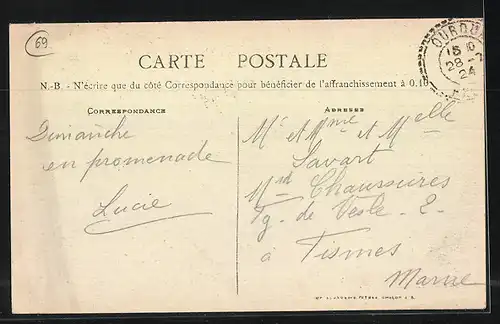 69
CARTE POSTALE
OUROUX
15 10
28 -7
24
N.-B. - N'écrire que du côté Correspondance pour bénéficier de l'affranchissement à 0.10
CORRESPONDANCE
ADRESSE
Dimanche
en promenade
Lucie
Mr et Mme et Melle
Savart
Md Chaussures
Fg. de Vesle - 2 -
à Fismes
Marne